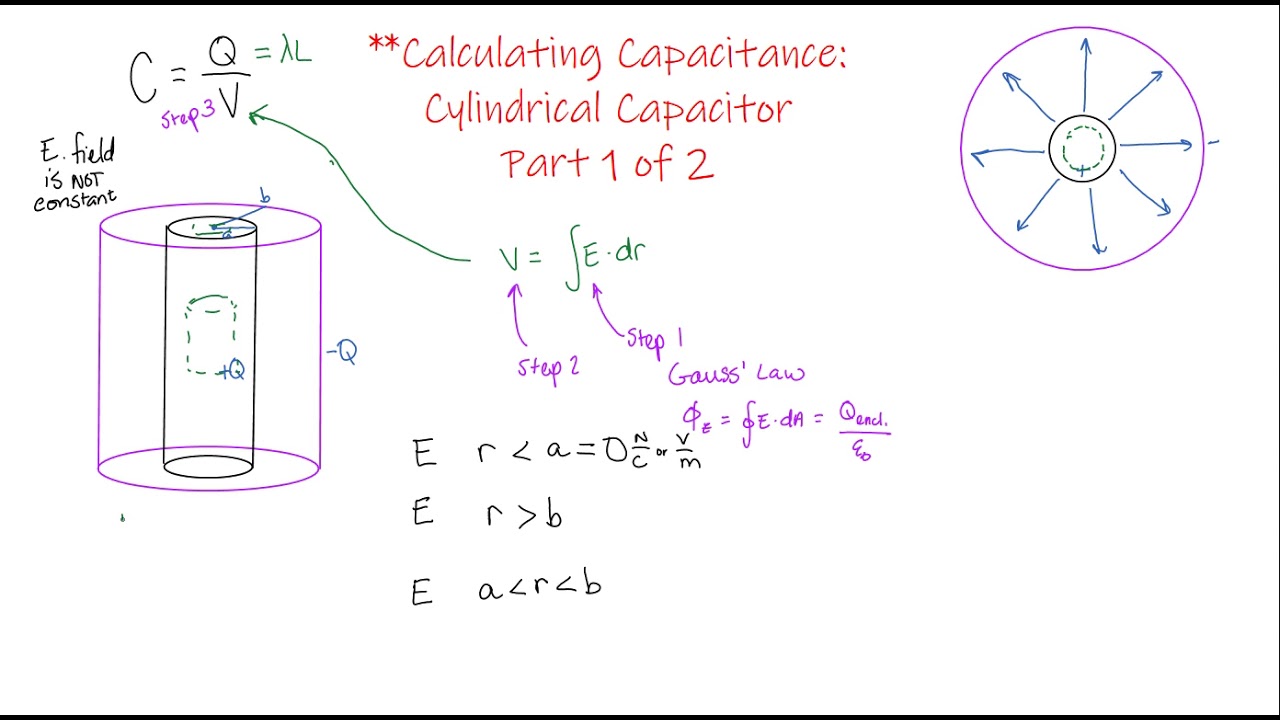 C = Q/V = λL
Step 3
**Calculating Capacitance:
Cylindrical Capacitor
Part 1 of 2
E. field
is NOT
constant
b
a
+Q
-Q
V = ∫E·dr
Step 2
Step 1
Gauss' Law
Φ_E = ∮E·dA = Q_encl./ε₀
E r < a = 0 N/C or V/m
E r > b
E a < r < b
+
-